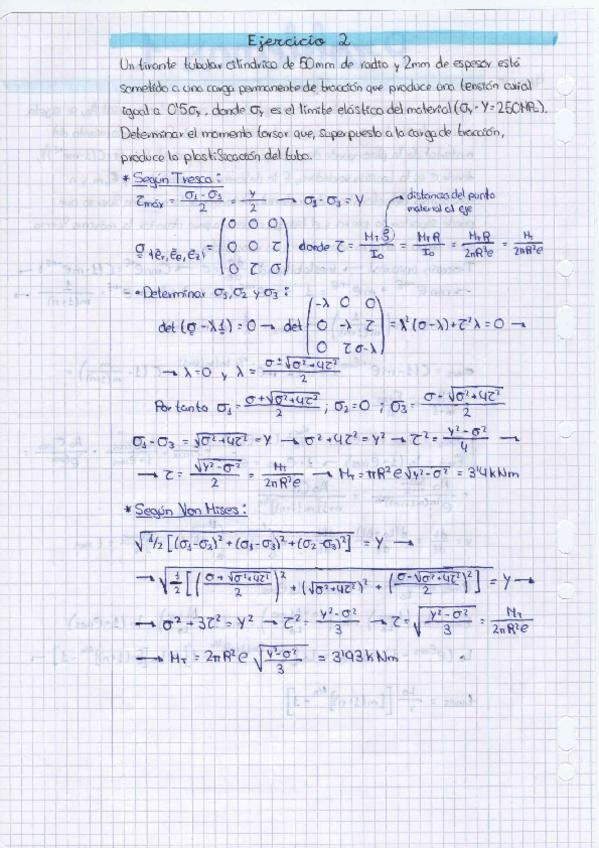 Ejercicio 2
Un tirante tubular cilíndrico de 50mm de radio y 2mm de espesor está
sometido a una carga permanente de tracción que produce una tensión axial
igual a 0'5σy, donde σy es el límite elástico del material (σy = Y = 250MPa).
Determinar el momento torsor que, superpuesto a la carga de tracción,
produce la plastificación del tubo.
* Según Tresca:
τmáx = (σ1 - σ3)/2 = Y/2 → σ1 - σ3 = Y
distancia del punto material al eje
σ{ēr, ēθ, ēz} = (0 0 0; 0 0 τ; 0 τ σ) donde τ = MT ρ/I0 = MT R/I0 = MT R/2πR³e = MT/2πR²e
Determinar σ1, σ2 y σ3:
det (σ - λ1) = 0 → det (-λ 0 0; 0 -λ τ; 0 τ σ-λ) = λ²(σ-λ) + τ²λ = 0 →
→ λ = 0 y λ = (σ ± √(σ² + 4τ²))/2
Por tanto σ1 = (σ + √(σ² + 4τ²))/2 ; σ2 = 0 ; σ3 = (σ - √(σ² + 4τ²))/2
σ1 - σ3 = √(σ² + 4τ²) = Y → σ² + 4τ² = Y² → τ² = (Y² - σ²)/4 →
→ τ = √(Y² - σ²)/2 = MT/2πR²e → MT = πR²e √(Y² - σ²) = 3'4 kNm
* Según Von Mises:
√(1/2 [(σ1 - σ2)² + (σ1 - σ3)² + (σ2 - σ3)²]) = Y →
→ √(1/2 [((σ + √(σ² + 4τ²))/2)² + (√(σ² + 4τ²))² + ((σ - √(σ² + 4τ²))/2)²]) = Y →
→ σ² + 3τ² = Y² → τ² = (Y² - σ²)/3 → τ = √((Y² - σ²)/3) = MT/2πR²e
→ MT = 2πR²e √((Y² - σ²)/3) = 3'93 kNm